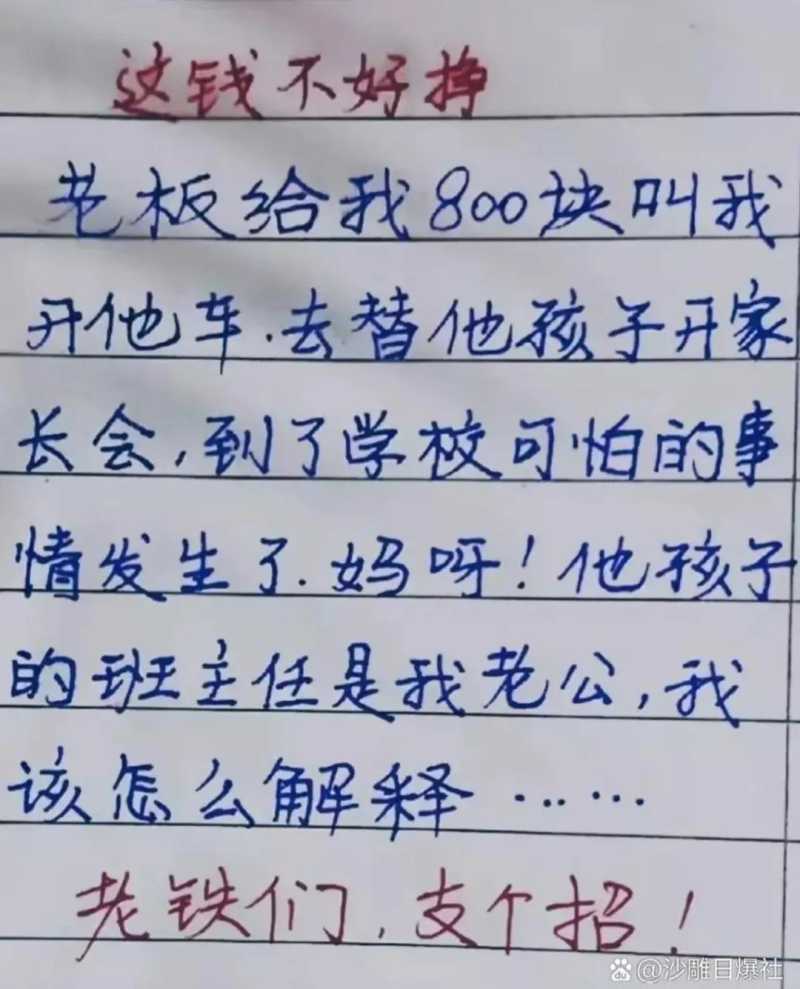 这钱不好挣
老板给我800块叫我
开他车.去替他孩子开家
长会,到了学校可怕的事
情发生了.妈呀!他孩子
的班主任是我老公,我
该怎么解释……
老铁们,支个招!
@沙雕日爆社